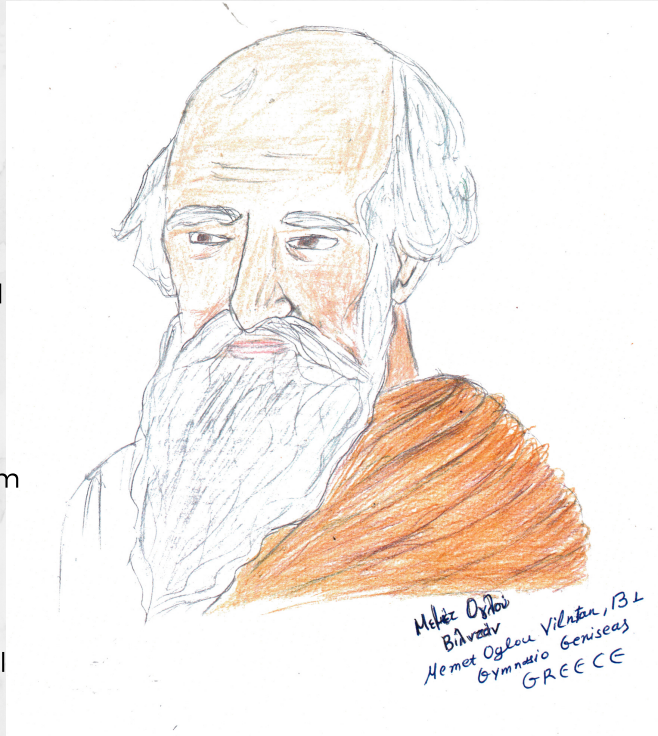 l
m
l
Μεμέτ Ογλού
Βιλντάν
Memet Oglou Vilntan, B1
Gymnasio Geniseas
GREECE